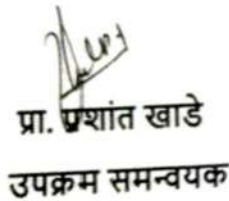 प्रा. प्रशांत खाडे
उपक्रम समन्वयक